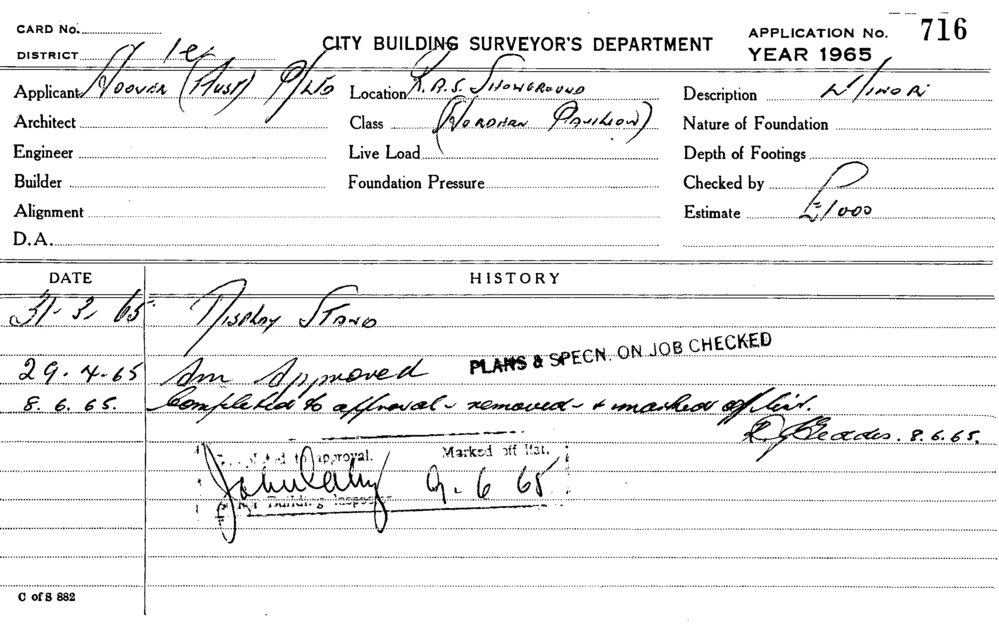 CARD No.
CITY BUILDING SURVEYOR'S DEPARTMENT
APPLICATION No. 716
DISTRICT 1er
YEAR 1965
Applicant Hoover (Aust) P/Ltd
Location R.A.S. Showground
Description Minor
Architect
Class (Hordern Pavilion)
Nature of Foundation
Engineer
Live Load
Depth of Footings
Builder
Foundation Pressure
Checked by
Alignment
Estimate £1000
D.A.
DATE HISTORY
31-3-65 Display Stand
29-4-65 Approved PLANS & SPECN. ON JOB CHECKED
8.6.65. Completed to approval - removed - & marked off list.
8.6.65.
Completed to approval. Marked off list.
9-6 65
for Building Inspector
C of S 882